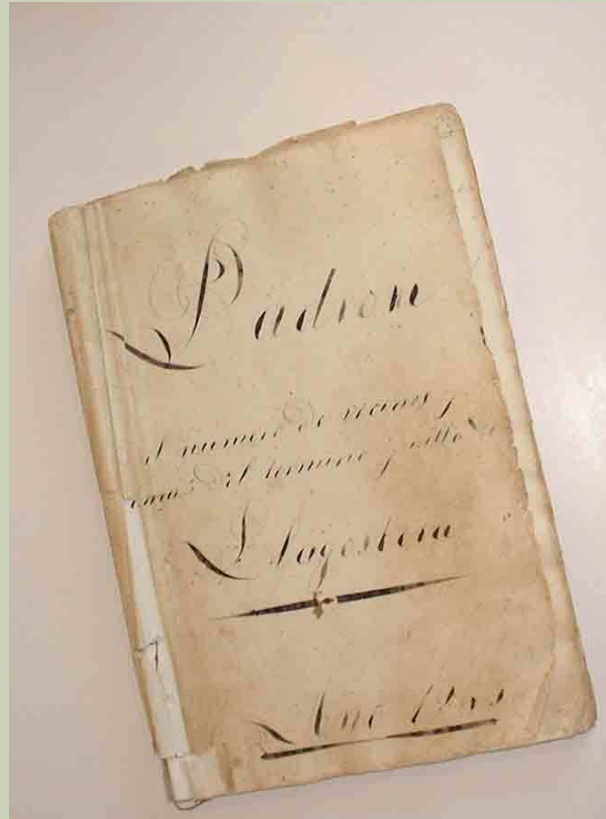 Padron
el numero de vecinos y
del termino y villa de
Llagostera
Año